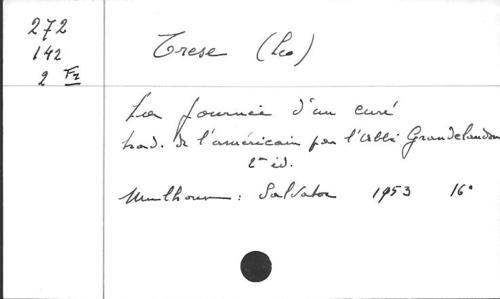 272
142
2 Fz
Trese (Leo)
La Journée d'un curé
trad. de l'américain par l'Abbé Grandclaudon
2e éd.
Mulhouse : Salvator 1953 16°